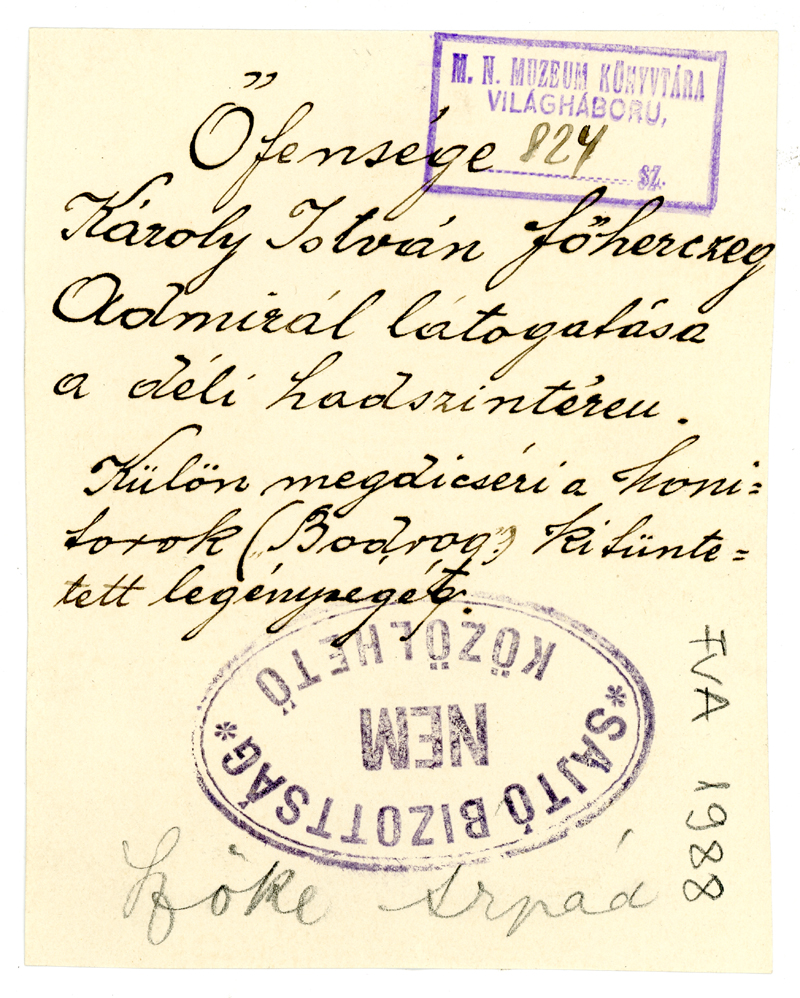 M. N. MUZEUM KÖNYVTÁRA
VILÁGHÁBORU,
824 SZ.
Őfensége
Károly István főherczeg
Admirál látogatása
a déli hadszintéren.
Külön megdicséri a honi=
torok („Bodrog”) kitünte=
tett legénységét.
SAJTÓ BIZOTTSÁG
NEM
KÖZÖLHETŐ
FVA 1988
Szőke Árpád